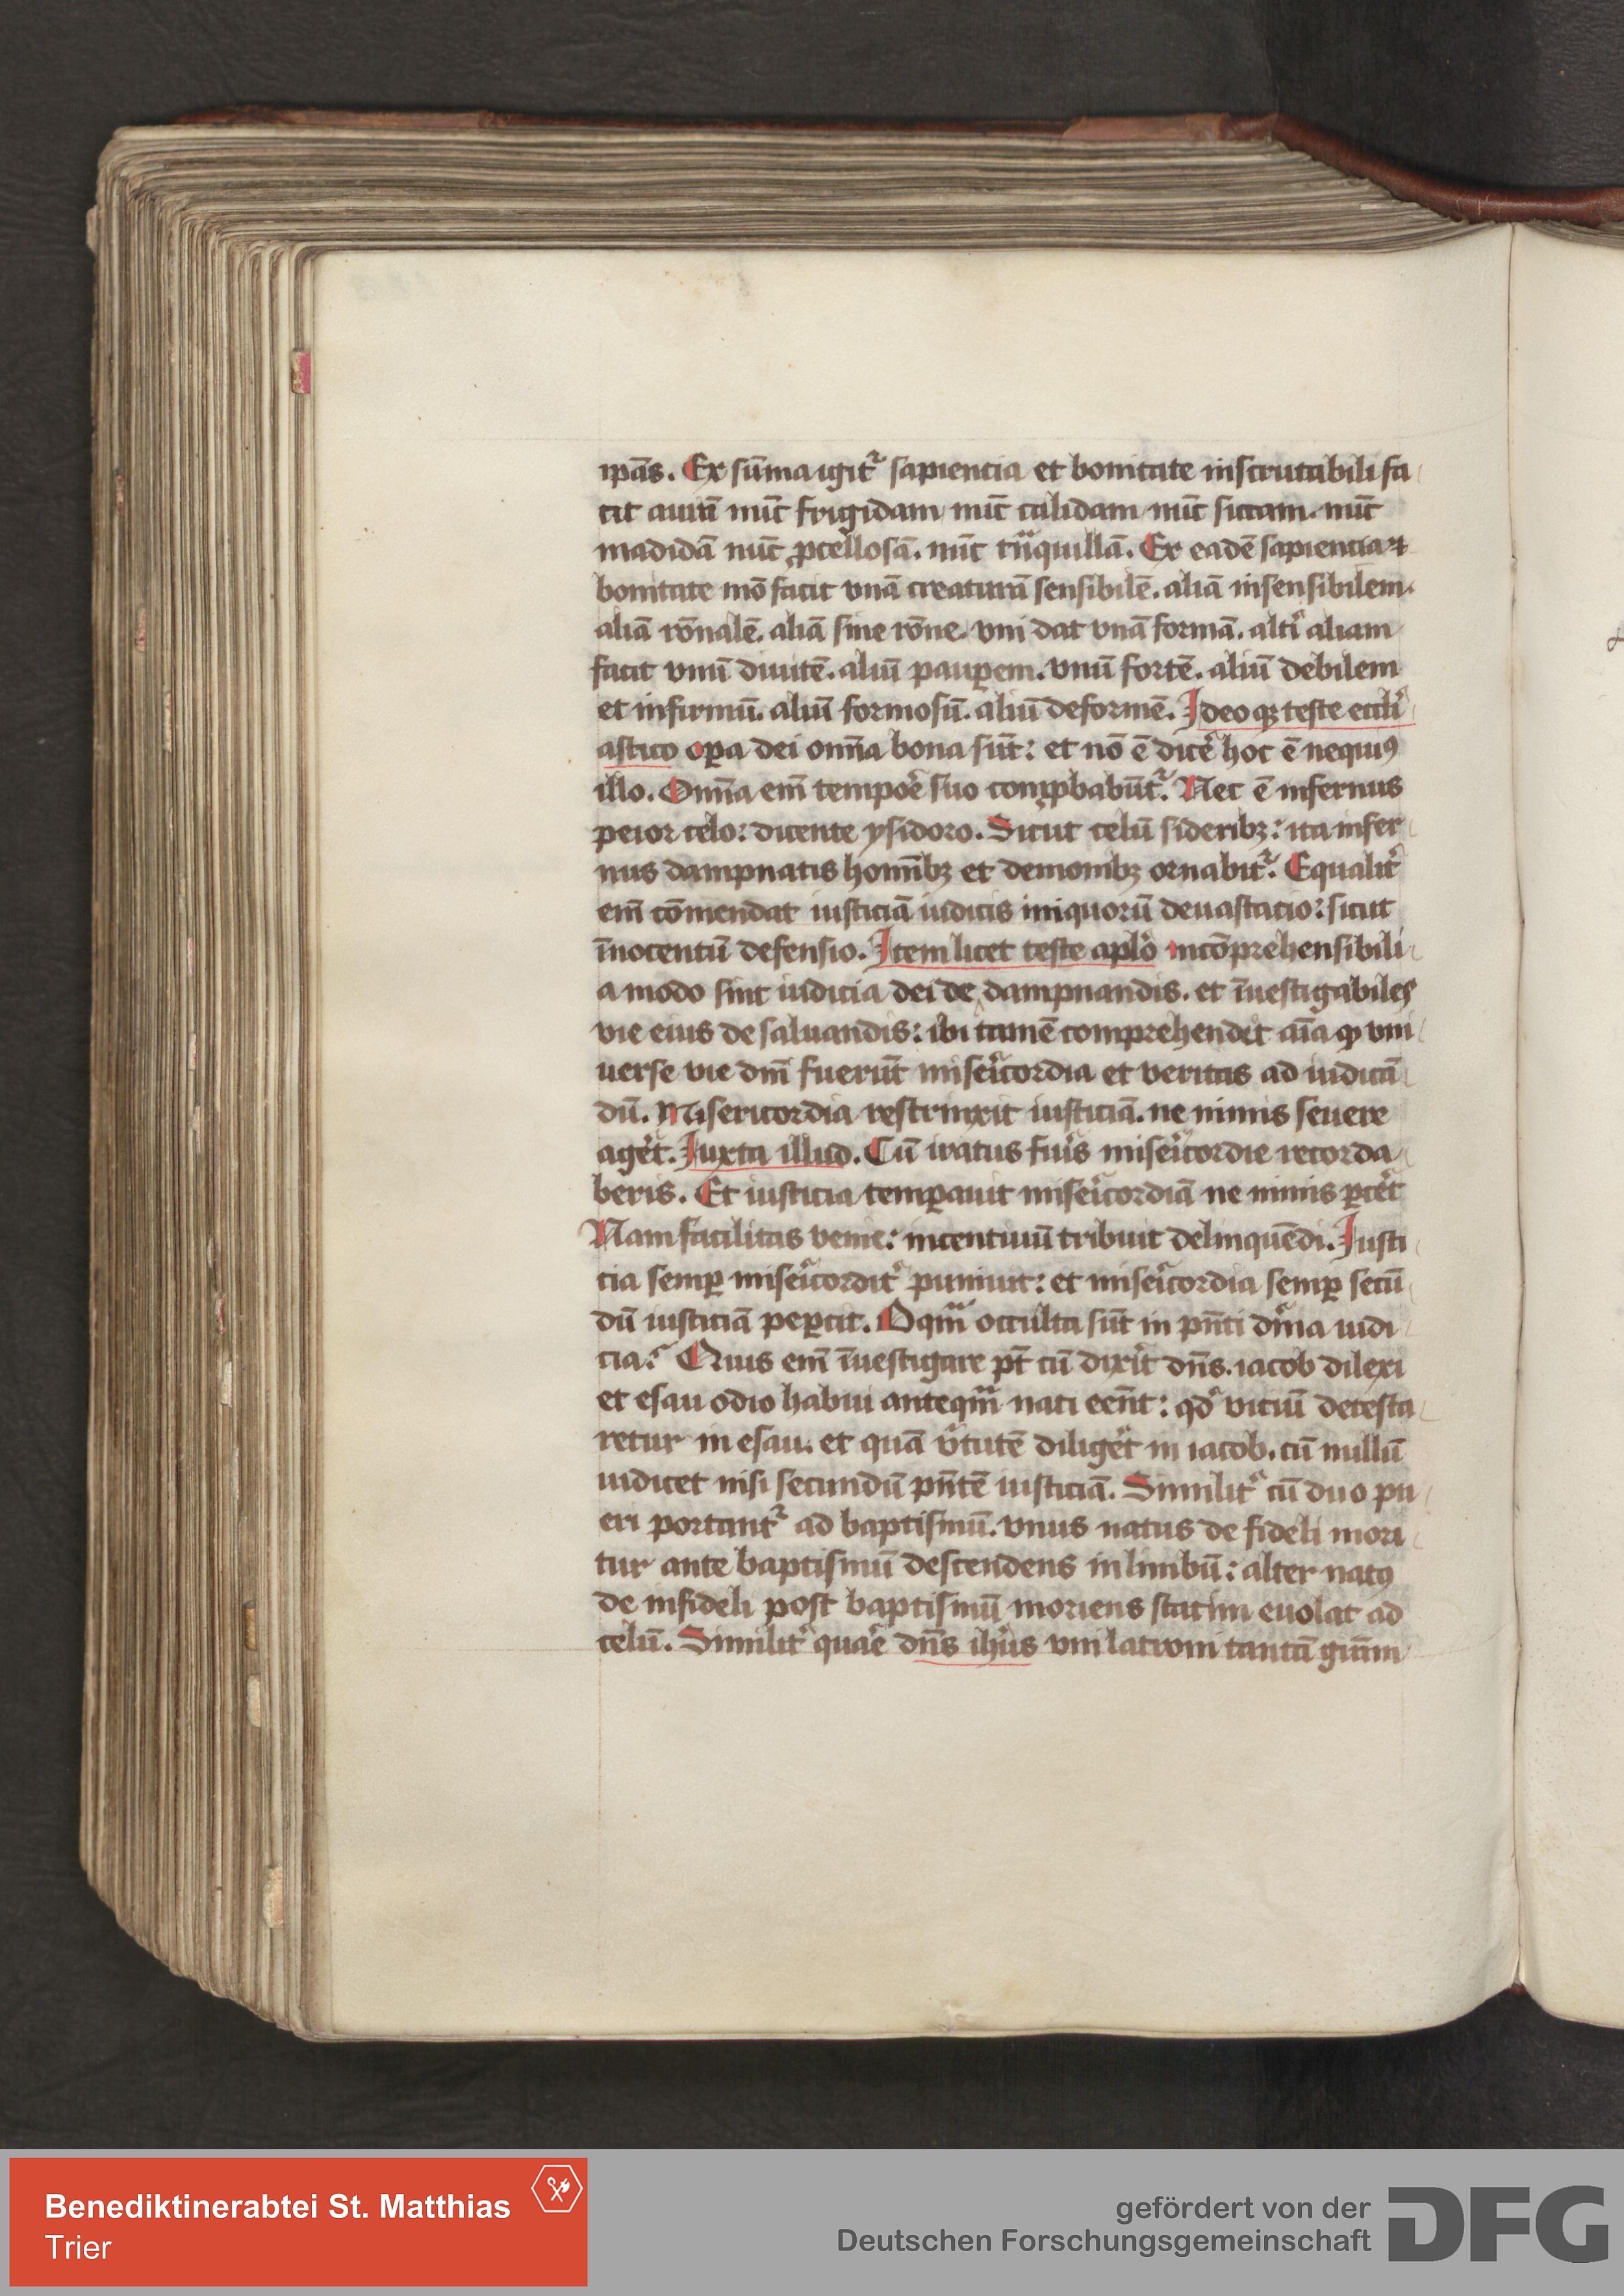 ip̄as. Ex sūma igit᷑ sapientia et bonitate inscrutabili fa
cit aurā nūc frigidam nūc calidam nūc siccam. nūc
madidā nūc ꝓcellosā. nūc tͣnquillā. Ex eadē sapiencia ⁊
bonitate mō facit vnā creaturā sensibilē. aliā insensibilem.
aliā rōnalē. aliā sine rōne. vni dat vnā formā. altͥ aliam
facit vnū diuitē. aliū pauꝑem. vnū fortē. aliū debilem
et infirmū. aliū formosū. aliū deformē. Ideoqꝫ teste eccli
astico oꝑa dei om̄a bona sūt: et nō ē dicē hoc ē nequiꝰ
illo. Om̄a em̄ tempoē suo comꝓbabūt᷑. Nec ē infernus
peior celo: dicente ysidoro. Sicut celū sideribꝫ: ita infer
nus dampnatis homībꝫ et demonibꝫ ornabit᷑. Equalit͛
em̄ cōmendat iusticiā iudicis iniquorū deuastacio: sicut
īnocentū defensio. Item licet teste aplō incōprehensibili
a modo sint iudicia dei de dampnandis. et īuestigabiles
vie eius de saluandis: ibi tamē comprehendet aīa ꝙ vni
uerse vie dn̄i fuerūt mise͛icordia et veritas ad iudicā
dū. Misericordia restrinxit iusticiā. ne nimis seuere
age͛t. Iuxta illud. Cū iratus fu͛is mise͛icordie recorda
beris. Et iusticia temꝑauit mise͛icordiā ne nimis ꝑce͛t
Nam facilitas venie: incentiuū tribuit delinquēdi. Iusti
cia semꝑ mise͛icordit͛ puniuit: et mise͛icordia semꝑ secū
dū iusticiā peꝑcit. O qͣm occulta sūt in pn̄ti dīna iudi
cia: Quis em̄ īuestigare pt̄ cū dixit dn̄s. iacob dilexi
et esau odio habui anteqͣm nati eēnt: qd᷑ viciū detesta
retur in esau. et quā v͛tutē dilige͛t in iacob. cū nullū
iudicet nisi secundū pn̄tē iusticiā. Similit͛ cū duo pu
eri portant᷑ ad baptismū. vnus natus de fideli mori
tur ante baptismū descendens in limbū: alter natꝰ
de infideli post baptismū moriens statim euolat ad
celū. Similit͛ quaē dn̄s ih̄us vni latroni tantā gr̄am
Benediktinerabtei St. Matthias
Trier
gefördert von der
Deutschen Forschungsgemeinschaft
DFG